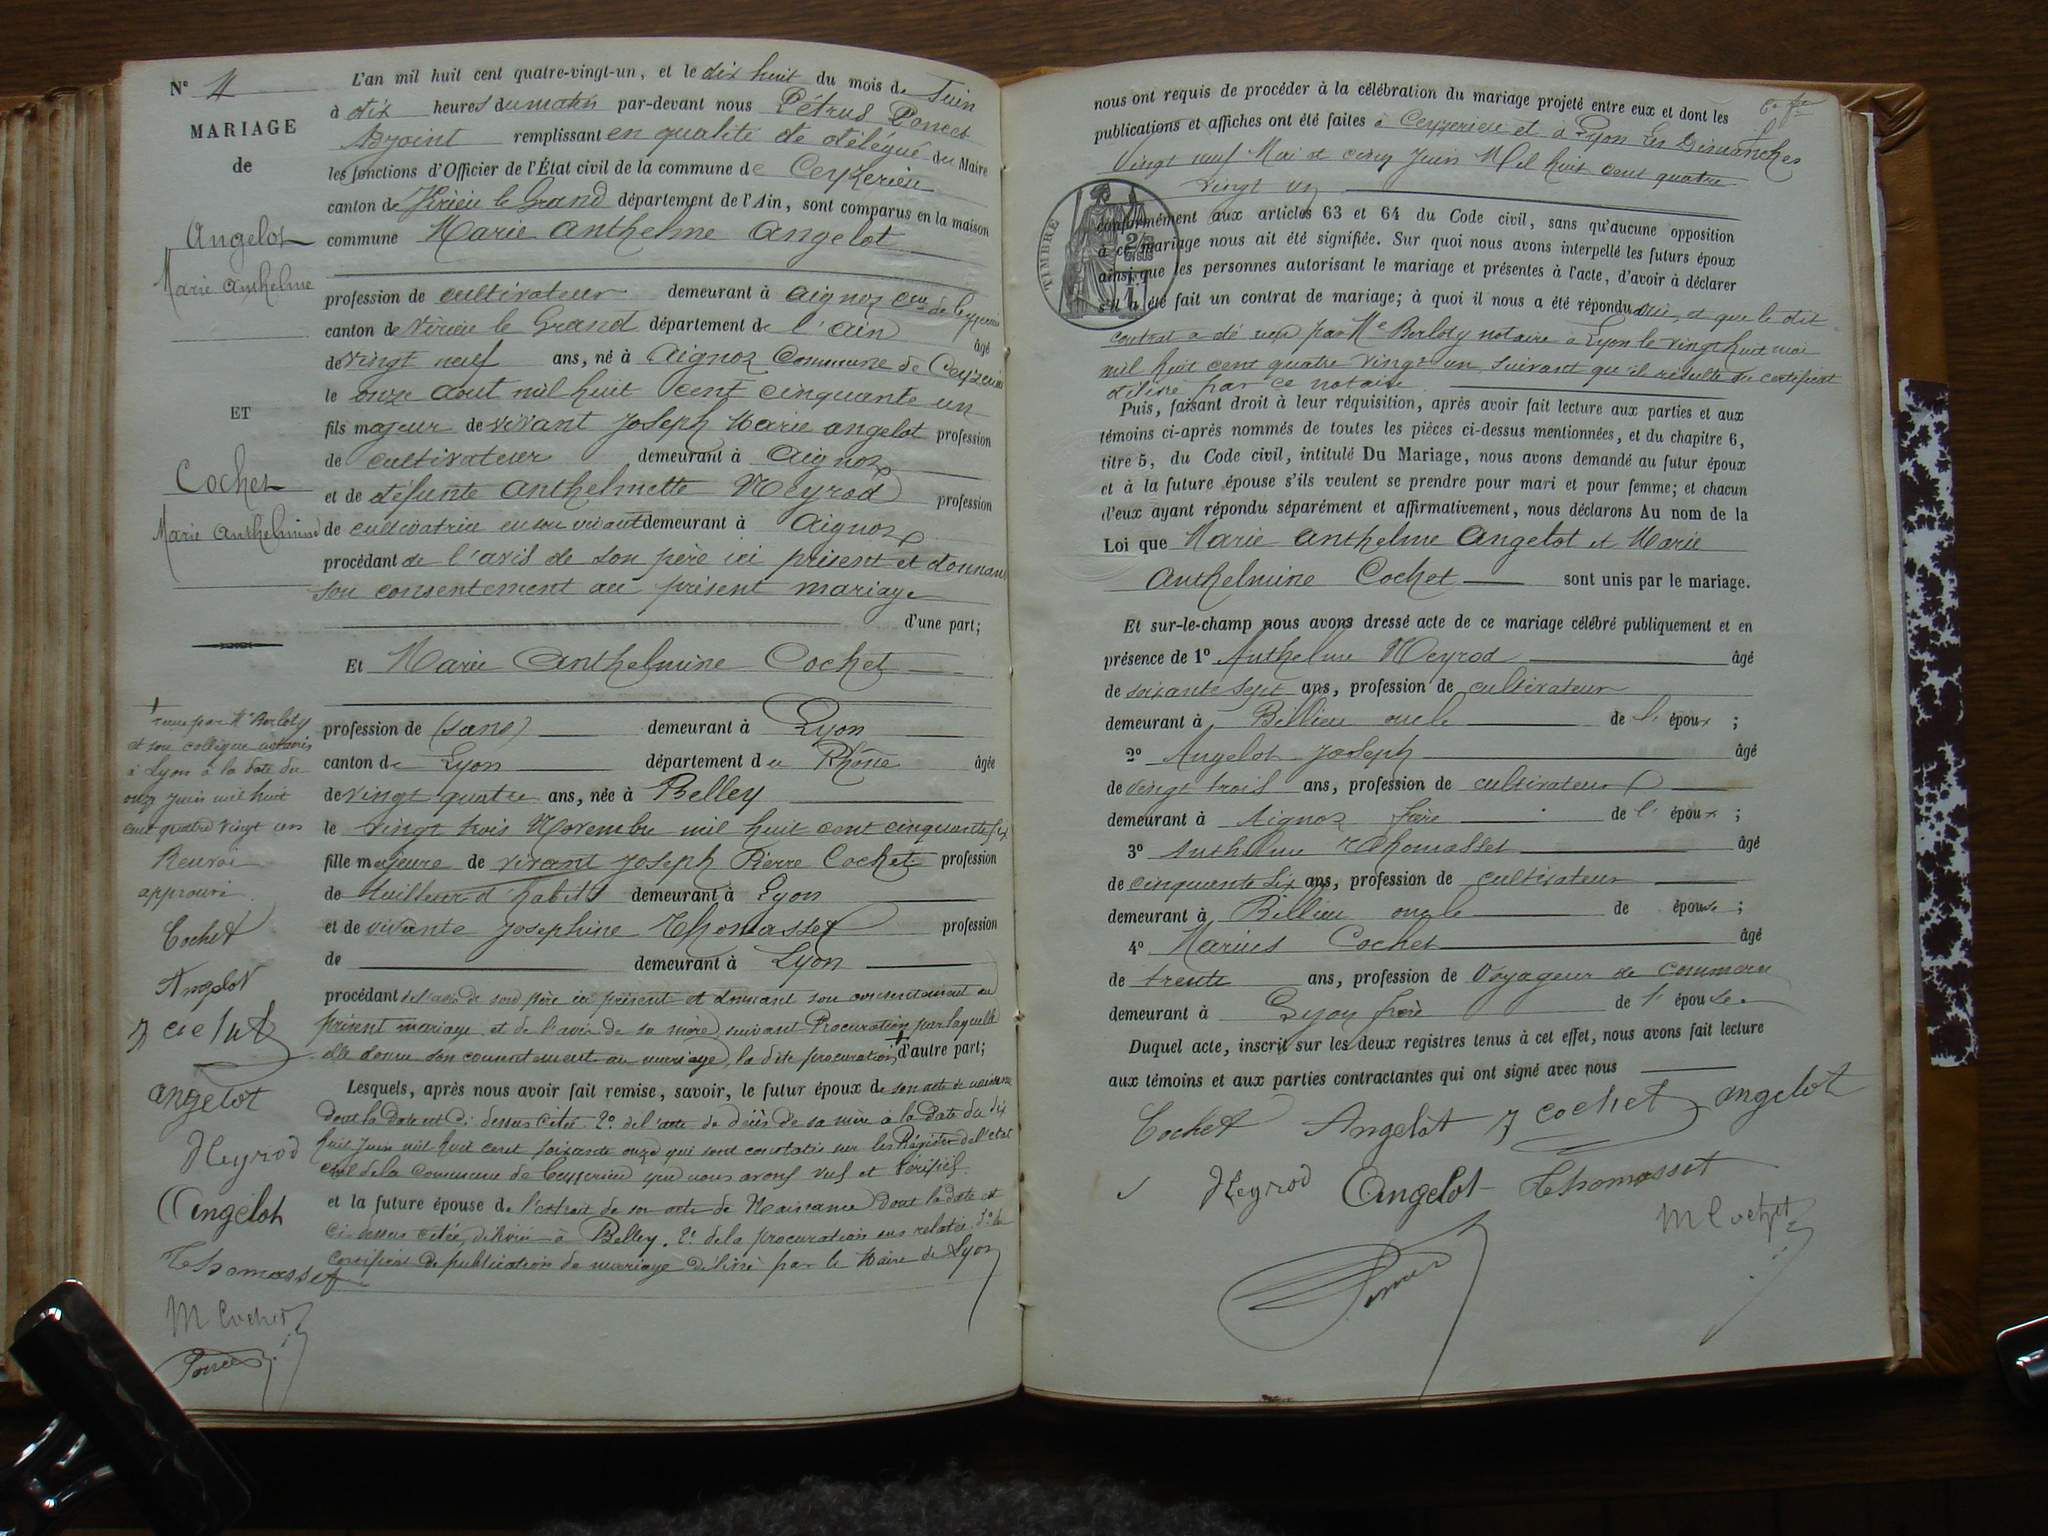 N° 4
MARIAGE
de
Angelot
Marie Anthelme
ET
Cochet
Marie Anthelmine
L'an mil huit cent quatre-vingt-un, et le dix huit du mois de Juin
à dix heures du matin par-devant nous Pétrus Poncet
Adjoint remplissant en qualité de délégué du Maire
les fonctions d'Officier de l'État civil de la commune de Ceyzerieu
canton de Virieu le Grand département de l'Ain, sont comparus en la maison
commune Marie Anthelme Angelot
profession de cultivateur demeurant à Aignoz Cne de Ceyzerieu
canton de Virieu le Grand département de l'Ain âgé
de vingt neuf ans, né à Aignoz Commune de Ceyzerieu
le onze Aout mil huit cent cinquante un
fils majeur de vivant Joseph Marie Angelot profession
de cultivateur demeurant à Aignoz
et de défunte Anthelmette Meyrod profession
de cultivatrice en son vivant demeurant à Aignoz
procédant de l'avis de son père ici présent et donnant
son consentement au présent mariage
d'une part;
Et Marie Anthelmine Cochet
profession de (sans) demeurant à Lyon
canton de Lyon département du Rhône âgée
de vingt quatre ans, née à Belley
le vingt trois Novembre mil huit cent cinquante six
fille majeure de vivant Joseph Pierre Cochet profession
de tailleur d'habits demeurant à Lyon
et de vivante Josephine Thomasset profession
de demeurant à Lyon
procédant de l'avis de son père ici présent et donnant son consentement au
présent mariage et de l'avis de sa mère suivant Procuration par laquelle
elle donne son consentement au mariage, la dite procuration d'autre part;
reçue par Me Berloty
et son collègue notaires
à Lyon à la date du
onze Juin mil huit
cent quatre vingt un
Renvoi
approuvé
Cochet
Angelot
J cochet
angelot
Meyrod
Angelot
Thomasset
M Cochet
Poncet
Lesquels, après nous avoir fait remise, savoir, le futur époux de son acte de naissance
dont la date est ci-dessus citée 2° de l'acte de décès de sa mère à la date du dix
huit Juin mil huit cent soixante onze qui sont constatés sur les Régistres de l'état
civil de la Commune de Ceyzerieu que nous avons vus et vérifiés
et la future épouse de l'extrait de son acte de Naissance dont la date est
ci-dessus citée, délivré à Belley. 2° de la procuration sus relatée 3° le
certificat de publication de mariage délivré par le Maire de Lyon
nous ont requis de procéder à la célébration du mariage projeté entre eux et dont les
publications et affiches ont été faites à Ceyzerieu et à Lyon les Dimanches
Vingt neuf Mai et cinq Juin Mil huit cent quatre
vingt un
TIMBRE
conformément aux articles 63 et 64 du Code civil, sans qu'aucune opposition
à ce mariage nous ait été signifiée. Sur quoi nous avons interpellé les futurs époux
ainsi que les personnes autorisant le mariage et présentes à l'acte, d'avoir à déclarer
s'il a été fait un contrat de mariage; à quoi il nous a été répondu oui, et que le dit
contrat a été reçu par Me Berloty notaire à Lyon le vingt huit mai
mil huit cent quatre vingt un, suivant qu'il résulte du certificat
délivré par ce notaire
Puis, faisant droit à leur réquisition, après avoir fait lecture aux parties et aux
témoins ci-après nommés de toutes les pièces ci-dessus mentionnées, et du chapitre 6,
titre 5, du Code civil, intitulé Du Mariage, nous avons demandé au futur époux
et à la future épouse s'ils veulent se prendre pour mari et pour femme; et chacun
d'eux ayant répondu séparément et affirmativement, nous déclarons Au nom de la
Loi que Marie Anthelme Angelot et Marie
Anthelmine Cochet sont unis par le mariage.
Et sur-le-champ nous avons dressé acte de ce mariage célébré publiquement et en
présence de 1° Anthelme Meyrod âgé
de soixante sept ans, profession de cultivateur
demeurant à Billieu oncle de l'époux;
2° Angelot Joseph âgé
de vingt trois ans, profession de cultivateur
demeurant à Aignoz frère de l'époux;
3° Anthelme Thomasset âgé
de cinquante six ans, profession de cultivateur
demeurant à Billieu oncle de épouse;
4° Marius Cochet âgé
de trente ans, profession de Voyageur de commerce
demeurant à Lyon frère de l'épouse.
Duquel acte, inscrit sur les deux registres tenus à cet effet, nous avons fait lecture
aux témoins et aux parties contractantes qui ont signé avec nous
Cochet Angelot J cochet angelot
Meyrod Angelot Thomasset
M Cochet
Poncet